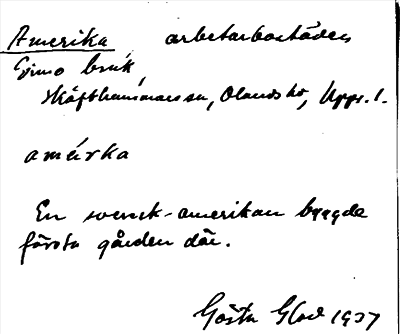 Amerika arbetarbostäder
Gimo bruk,
Skäfthammars sn, Olands hd, Upps. l.
amérka
En svensk-amerikan byggde
första gården där.
Gösta Glad 1937